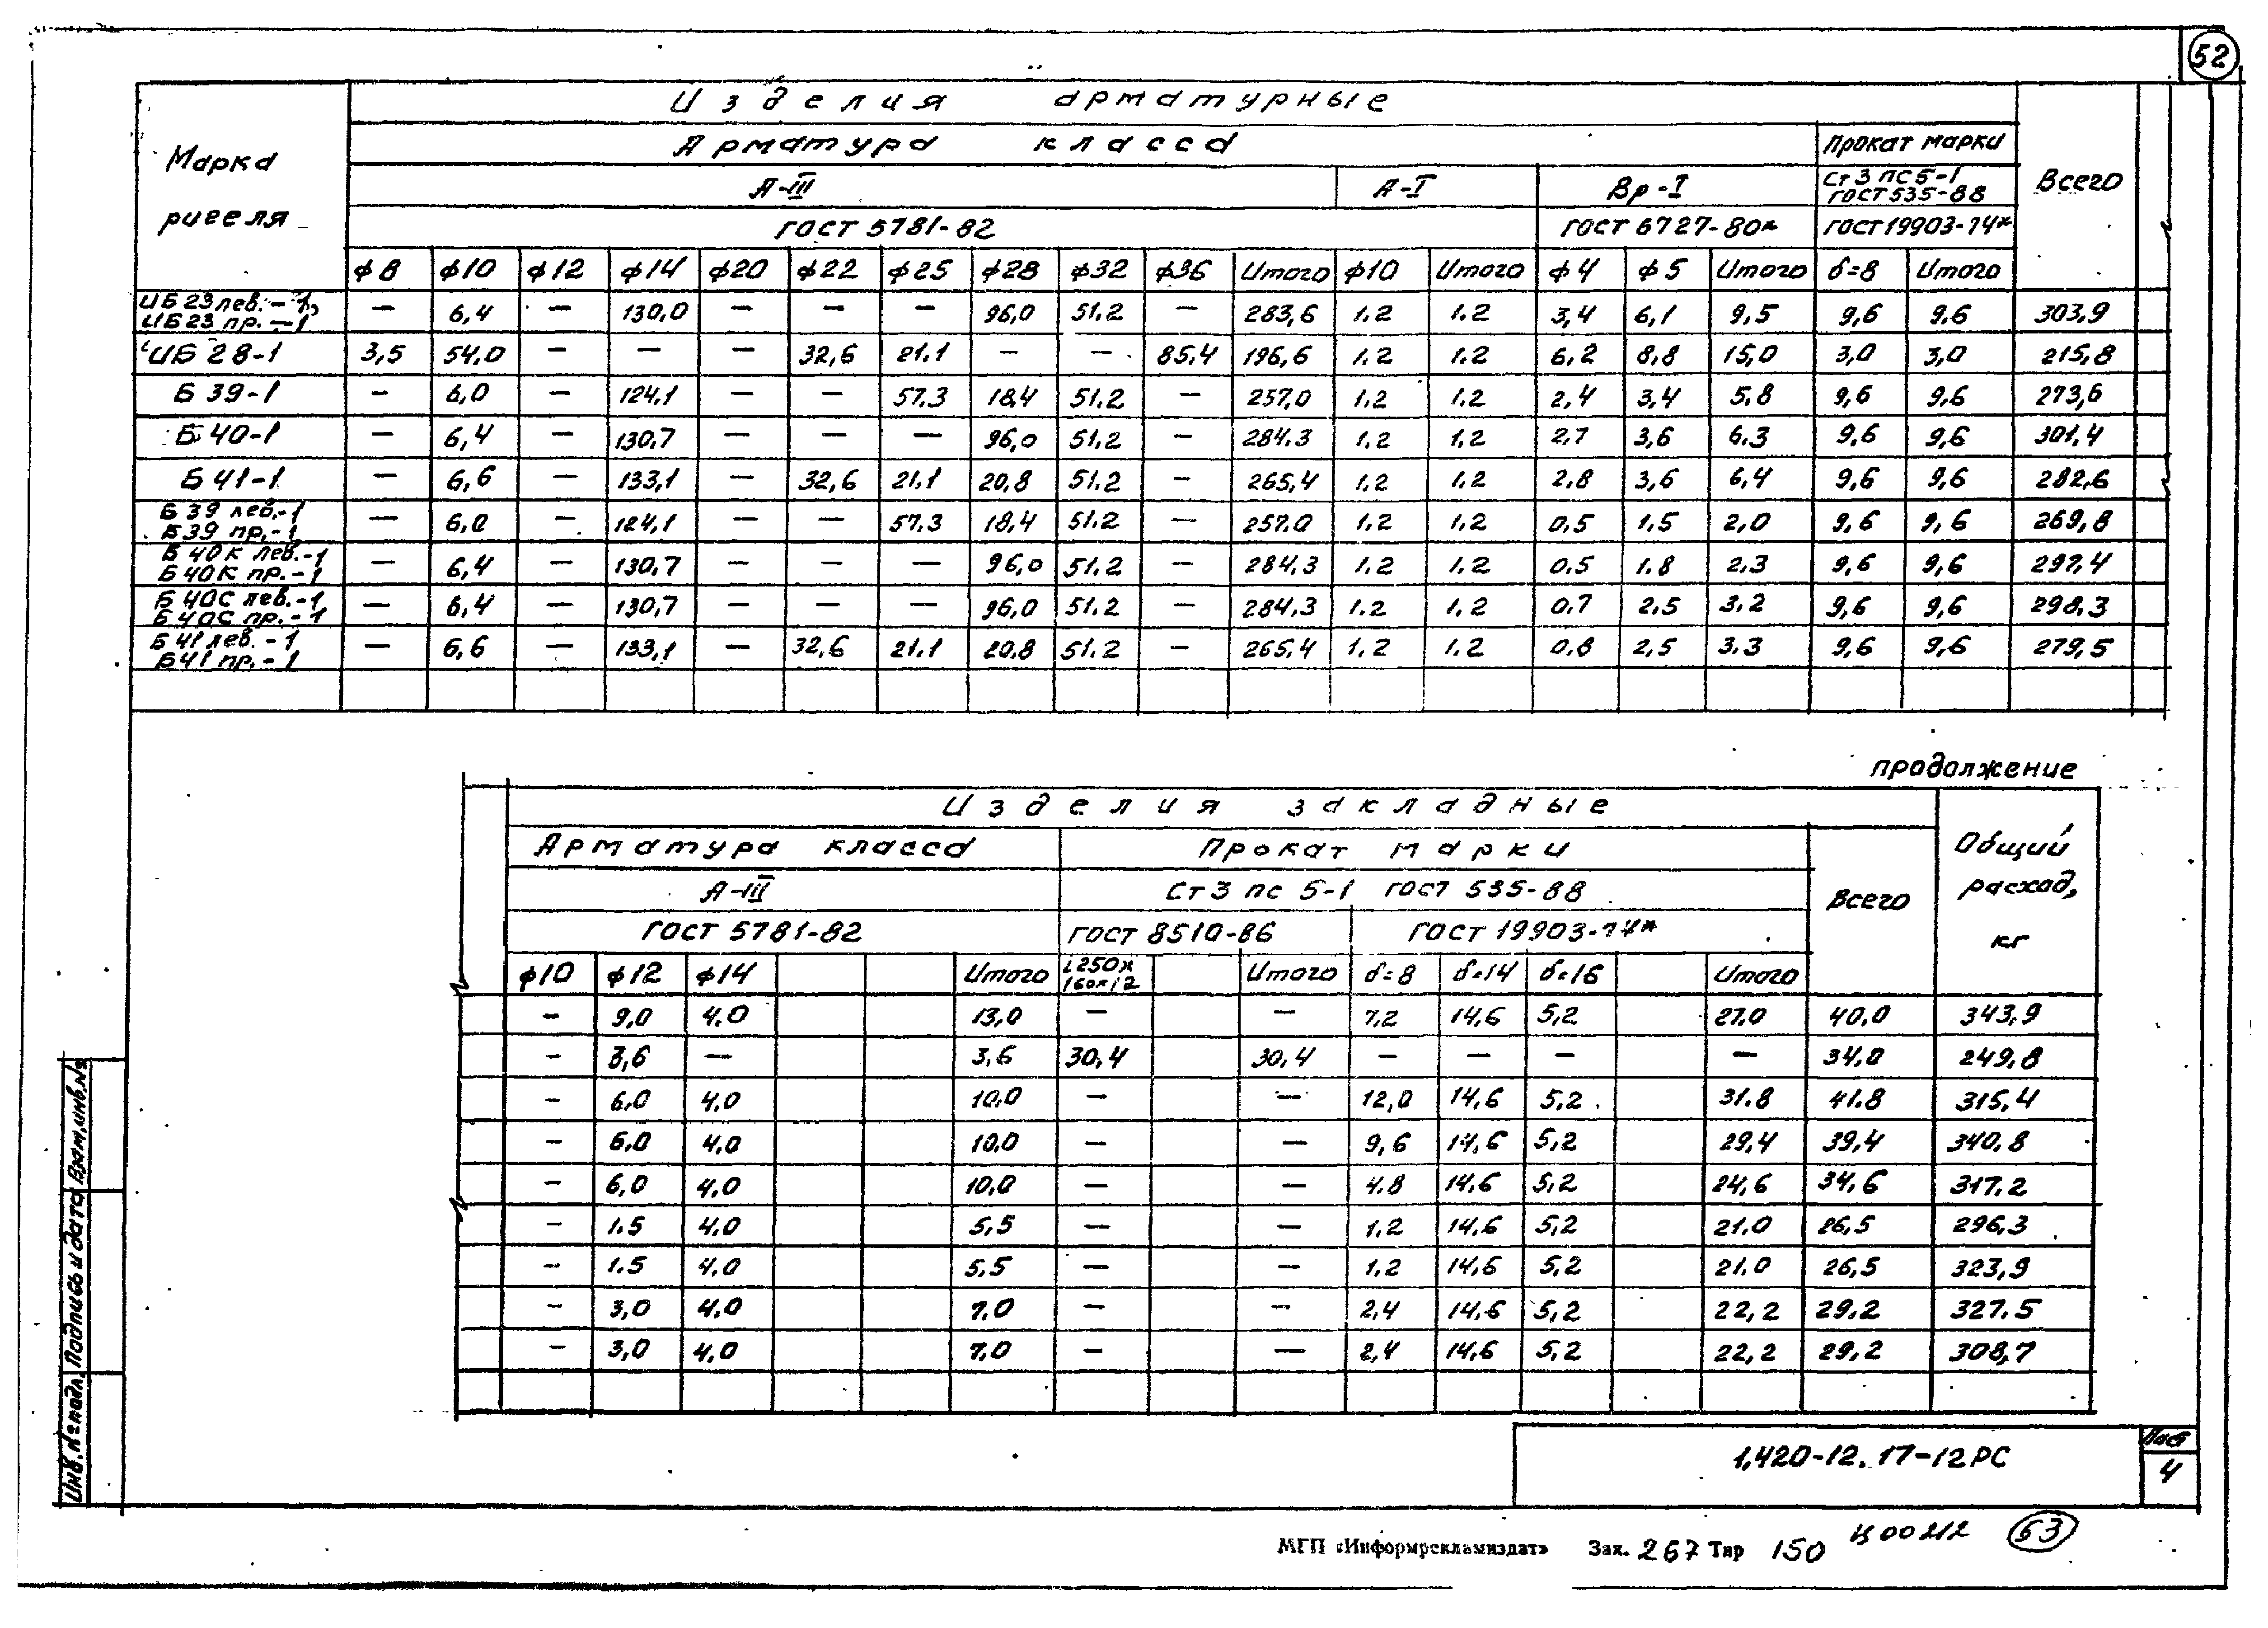 52
Изделия арматурные
Марка ригеля
Арматура класса
Прокат марки
Всего
А-III
А-I
Вр-I
Ст3пс5-1 ГОСТ 535-88
ГОСТ 5781-82
ГОСТ 6727-80*
ГОСТ 19903-74*
ф8 ф10 ф12 ф14 ф20 ф22 ф25 ф28 ф32 ф36 Итого ф10 Итого ф4 ф5 Итого δ=8 Итого
ИБ23лев.-1,
ИБ23 пр.-1 — 6,4 — 130,0 — — — 96,0 51,2 — 283,6 1,2 1,2 3,4 6,1 9,5 9,6 9,6 303,9
ИБ28-1 3,5 54,0 — — — 32,6 21,1 — — 85,4 196,6 1,2 1,2 6,2 8,8 15,0 3,0 3,0 215,8
Б39-1 — 6,0 — 124,1 — — 57,3 18,4 51,2 — 257,0 1,2 1,2 2,4 3,4 5,8 9,6 9,6 273,6
Б40-1 — 6,4 — 130,7 — — — 96,0 51,2 — 284,3 1,2 1,2 2,7 3,6 6,3 9,6 9,6 301,4
Б41-1 — 6,6 — 133,1 — 32,6 21,1 20,8 51,2 — 265,4 1,2 1,2 2,8 3,6 6,4 9,6 9,6 282,6
Б39 лев.-1
Б39 пр.-1 — 6,0 — 124,1 — — 57,3 18,4 51,2 — 257,0 1,2 1,2 0,5 1,5 2,0 9,6 9,6 269,8
Б40К лев.-1
Б40К пр.-1 — 6,4 — 130,7 — — — 96,0 51,2 — 284,3 1,2 1,2 0,5 1,8 2,3 9,6 9,6 297,4
Б40С лев.-1
Б40С пр.-1 — 6,4 — 130,7 — — — 96,0 51,2 — 284,3 1,2 1,2 0,7 2,5 3,2 9,6 9,6 298,3
Б41лев.-1
Б41пр.-1 — 6,6 — 133,1 — 32,6 21,1 20,8 51,2 — 265,4 1,2 1,2 0,8 2,5 3,3 9,6 9,6 279,5
продолжение
Изделия закладные
Общий расход, кг
Арматура класса
Прокат марки
Всего
А-III
Ст3 пс 5-1 ГОСТ 535-88
ГОСТ 5781-82
ГОСТ 8510-86
ГОСТ 19903-74*
ф10 ф12 ф14 Итого L250х160х12 Итого δ=8 δ=14 δ=16 Итого
— 9,0 4,0 13,0 — — 7,2 14,6 5,2 27,0 40,0 343,9
— 3,6 — 3,6 30,4 30,4 — — — — 34,0 249,8
— 6,0 4,0 10,0 — — 12,0 14,6 5,2 31,8 41,8 315,4
— 6,0 4,0 10,0 — — 9,6 14,6 5,2 29,4 39,4 340,8
— 6,0 4,0 10,0 — — 4,8 14,6 5,2 24,6 34,6 317,2
— 1,5 4,0 5,5 — — 1,2 14,6 5,2 21,0 26,5 296,3
— 1,5 4,0 5,5 — — 1,2 14,6 5,2 21,0 26,5 323,9
— 3,0 4,0 7,0 — — 2,4 14,6 5,2 22,2 29,2 327,5
— 3,0 4,0 7,0 — — 2,4 14,6 5,2 22,2 29,2 308,7
Инв.№подл. Подпись и дата Взам.инв.№
1.420-12.17-12РС
Лист
4
МГП «Информрекламиздат» Зак. 267 Тир 150 Ц00212 53